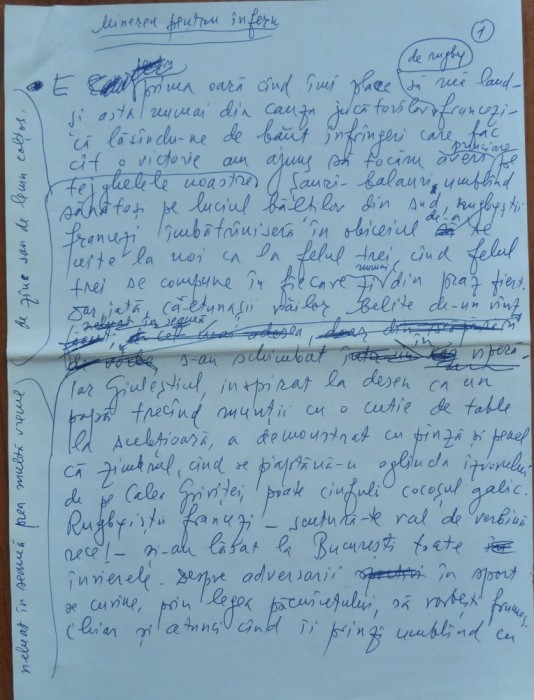 Minerea pentru infern
1
de rugby
E prima oară cînd îmi place să mă laud
și asta numai din cauza jucătorilor francezi
că lăsîndu-ne de băut înfrîngeri care fac
cît o victorie am ajuns să tocăm averi pe
tejghelele noastre. Ganzi-balauri, umblînd
sănătoși pe luciul bălților din sud, rugbyștii
francezi îmbătrîniseră în obiceiul de a se
uita la noi ca la felul trei cînd felul
trei se compune în fiecare zi numai din praz fiert.
Dar iată că ătunașii văilor belite de-un vînt
neluat în seamă
s-au schimbat în vipera
Iar Giuleștiul, inspirat la desen ca un
popă trecînd munții cu o cutie de table
la subțioară, a demonstrat cu pînză și penel
că zimbrul, cînd se piaptănă-n oglinda izvorului
de pe Calea Griviței, poate ciufuli cocoșul galic.
Rugbyiștii francezi – scutură-te val de verbină
rece! – și-au lăsat la București toate
învierele. Despre adversarii în sport
se cuvine, prin legea păcurețului, să vorbești frumos,
chiar și atunci cînd îi prinzi umblînd cu
de zîne sau de lemn colțos.
neluat în seamă prea multă vreme